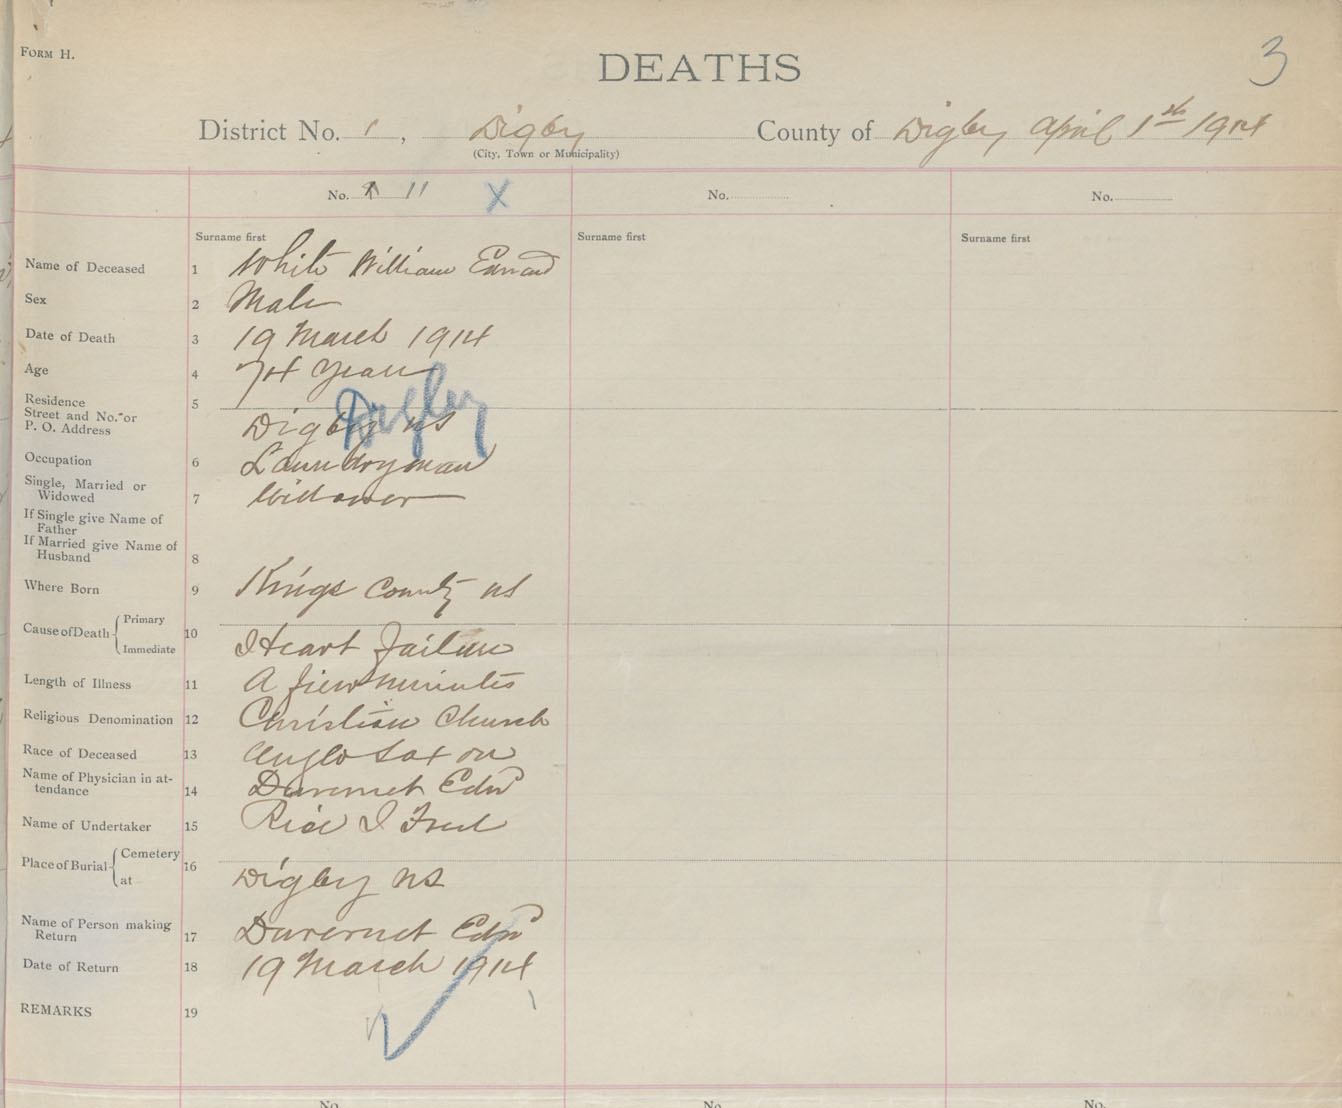 FORM H.
3
DEATHS
District No. 1, Digby County of Digby April 1st 1914
(City, Town or Municipality)
No. 11 X
No.
No.
Surname first
Surname first
Surname first
Name of Deceased 1 White William Edward
Sex 2 Male
Date of Death 3 19 March 1914
Age 4 74 years
Residence
Street and No. or
P. O. Address 5 Digby NS
Digby
Occupation 6 Laundryman
Single, Married or
Widowed 7 Widower
If Single give Name of
Father
If Married give Name of
Husband 8
Where Born 9 Kings County NS
Cause of Death Primary
Immediate 10 Heart Failure
Length of Illness 11 A fiew minutes
Religious Denomination 12 Christian Church
Race of Deceased 13 Anglo Saxon
Name of Physician in at-
tendance 14 Duvernet Edw
Name of Undertaker 15 Rice J Fred
Place of Burial Cemetery
at 16 Digby NS
Name of Person making
Return 17 Duvernet Edw
Date of Return 18 19 March 1914
REMARKS 19
No.
No.
No.